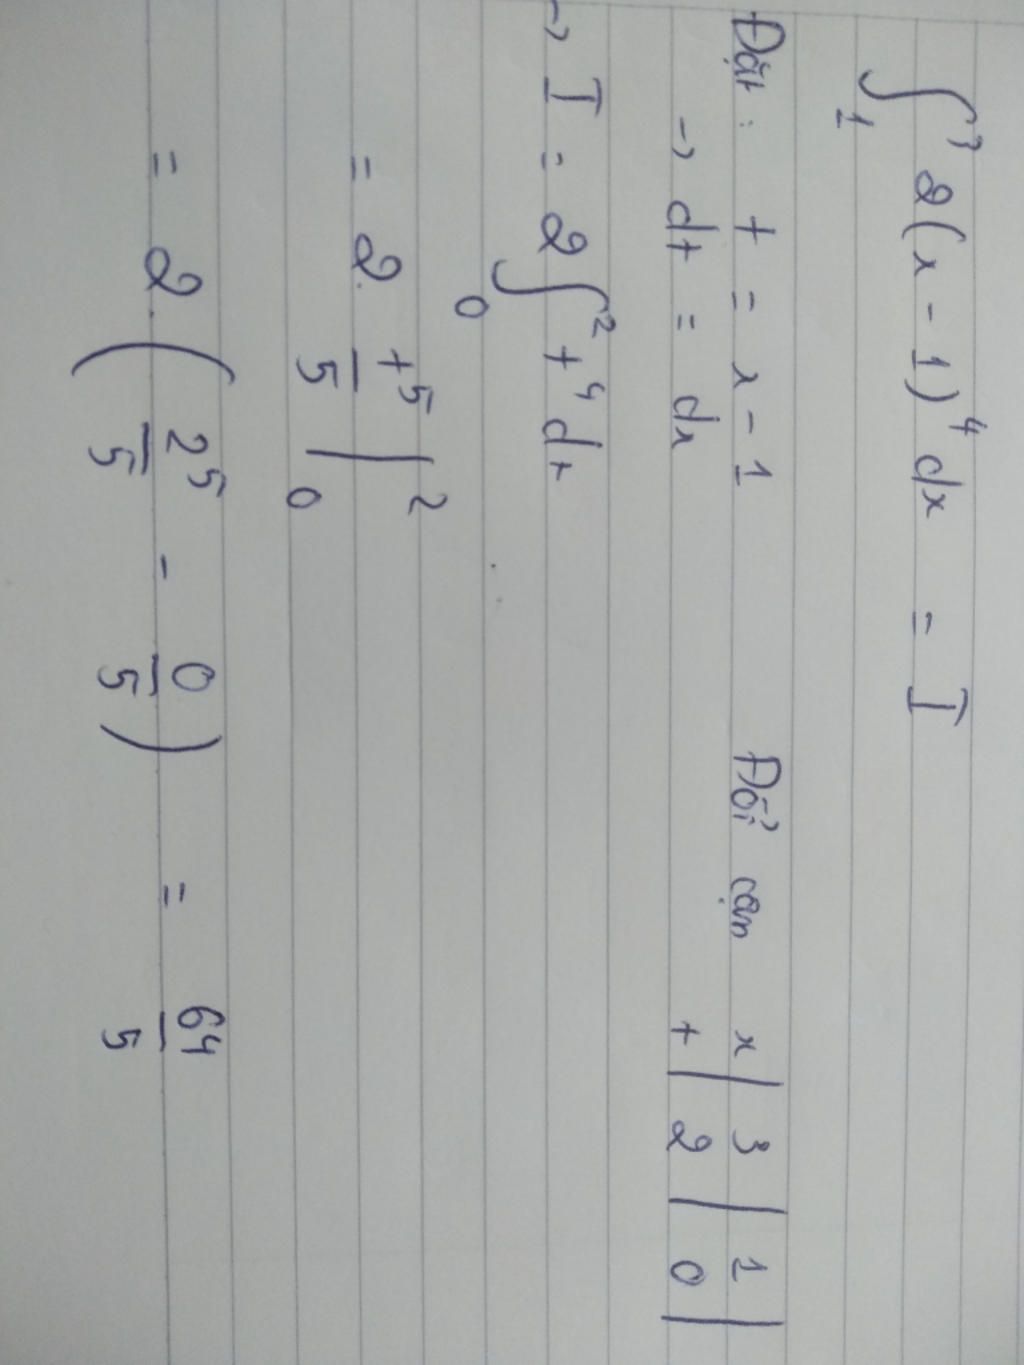 ∫₁³ 2(x - 1)⁴ dx = I
Đặt : t = x - 1 Đổi cận x | 3 | 1 |
→ dt = dx t | 2 | 0 |
→ I = 2 ∫₀² t⁴ dt
= 2. t⁵/5 |₀²
= 2. ( 2⁵/5 - 0/5 ) = 64/5